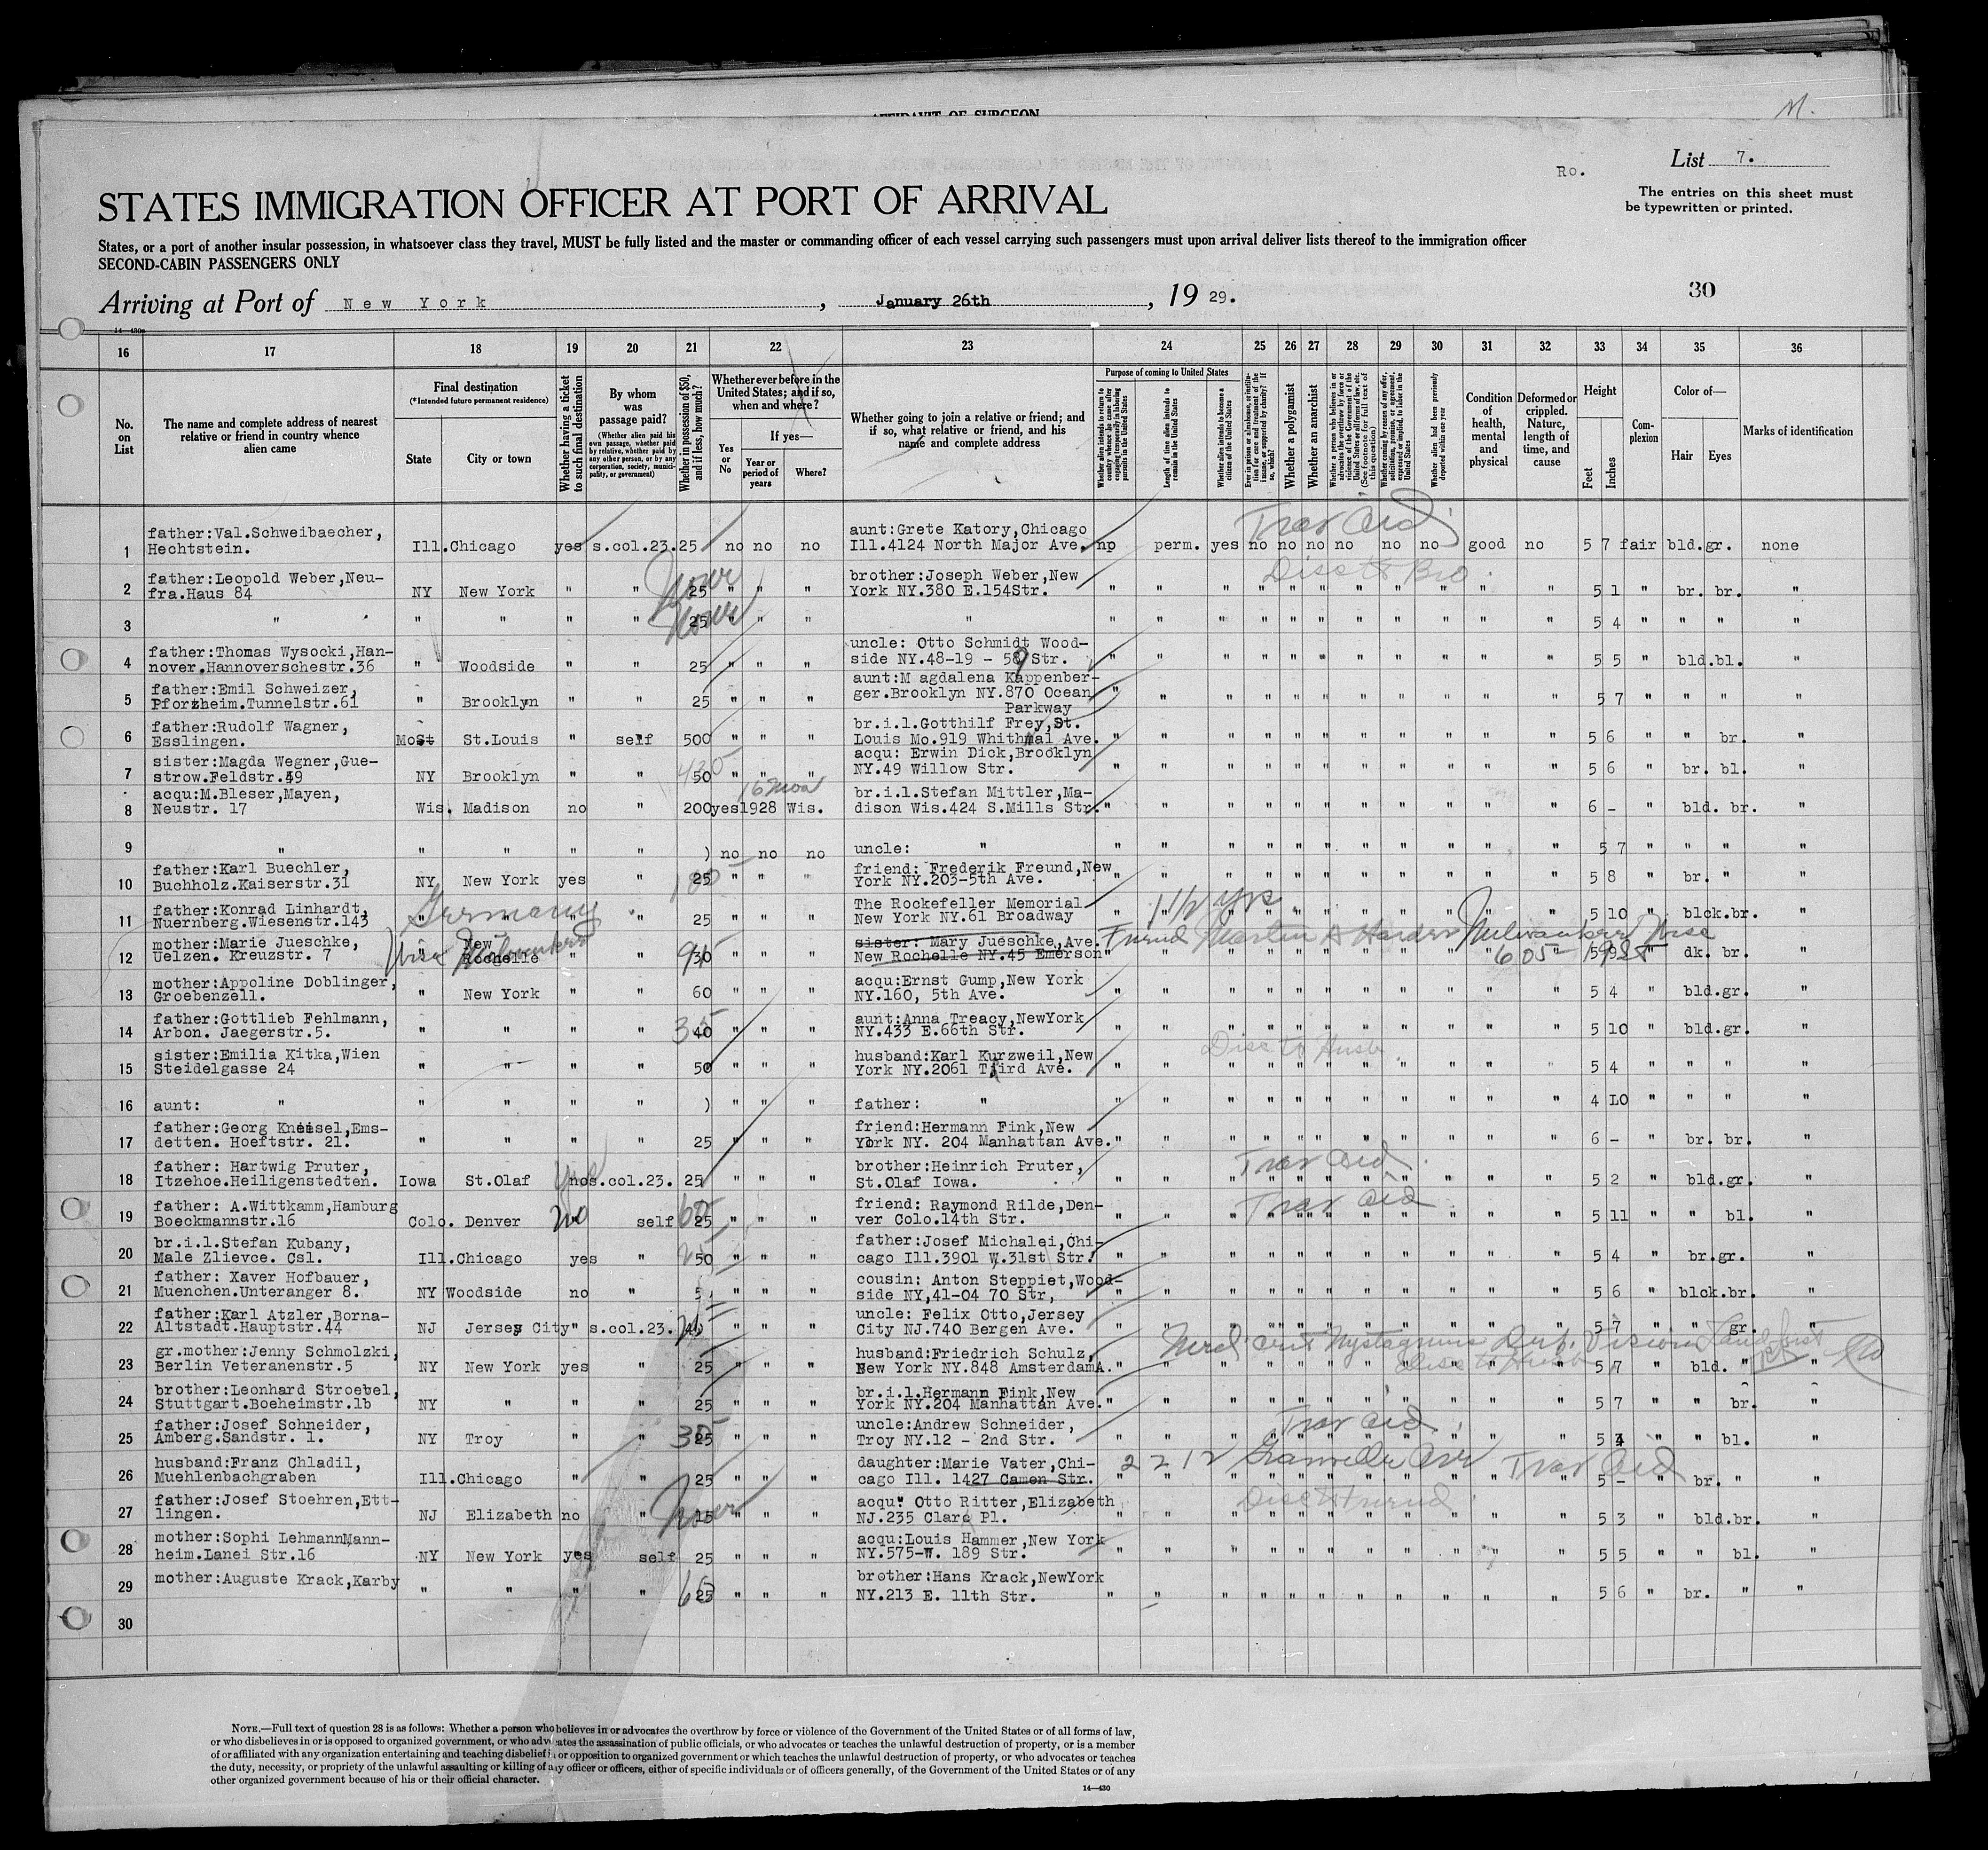 AFFIDAVIT OF SURGEON
M.
List 7.
Ro.
The entries on this sheet must
be typewritten or printed.
STATES IMMIGRATION OFFICER AT PORT OF ARRIVAL
States, or a port of another insular possession, in whatsoever class they travel, MUST be fully listed and the master or commanding officer of each vessel carrying such passengers must upon arrival deliver lists thereof to the immigration officer
SECOND-CABIN PASSENGERS ONLY
Arriving at Port of New York, January 26th, 19 29.
30
14—430a
16 17 18 19 20 21 22 23 24 25 26 27 28 29 30 31 32 33 34 35 36
No. on List
The name and complete address of nearest relative or friend in country whence alien came
Final destination (*Intended future permanent residence)
State
City or town
Whether having a ticket to such final destination
By whom was passage paid?
(Whether alien paid his own passage, whether paid by relative, whether paid by any other person, or by any corporation, society, municipality, or government)
Whether in possession of $50, and if less, how much?
Whether ever before in the United States; and if so, when and where?
Yes or No
If yes—
Year or period of years
Where?
Whether going to join a relative or friend; and if so, what relative or friend, and his name and complete address
Purpose of coming to United States
Whether alien intends to return to country whence he came after engaging temporarily in laboring pursuits in the United States
Length of time alien intends to remain in the United States
Whether alien intends to become a citizen of the United States
Ever in prison or almshouse, or institution for care and treatment of the insane, or supported by charity? If so, which?
Whether a polygamist
Whether an anarchist
Whether a person who believes in or advocates the overthrow by force or violence of the Government of the United States or all forms of law, etc. (See footnote for full text of this question)
Whether coming by reason of any offer, solicitation, promise, or agreement, expressed or implied, to labor in the United States
Whether alien had been previously deported within one year
Condition of health, mental and physical
Deformed or crippled. Nature, length of time, and cause
Height
Feet
Inches
Complexion
Color of—
Hair
Eyes
Marks of identification
Trav Aid
1 father:Val.Schweibaecher, Hechtstein. Ill. Chicago yes s.col.23. 25 no no no aunt:Grete Katory,Chicago Ill.4124 North Major Ave. np perm. yes no no no no no no good no 5 7 fair bld. gr. none
Disc to Bro
2 father:Leopold Weber,Neu- fra.Haus 84 NY New York " " 25 " " " brother:Joseph Weber,New York NY.380 E.154Str. " " " " " " " " " " " 5 1 " br. br. "
3 " " " " " 25 " " " " " " " " " " " " " " " 5 4 " " " "
4 father:Thomas Wysocki,Han- nover.Hannoverschestr.36 " Woodside " " 25 " " " uncle: Otto Schmidt Wood- side NY.48-19 - 59 Str. " " " " " " " " " " " 5 5 " bld. bl. "
5 father:Emil Schweizer, Pforzheim.Tunnelstr.61 " Brooklyn " " 25 " " " aunt:M agdalena Kappenber- ger.Brooklyn NY.870 Ocean Parkway " " " " " " " " " " " 5 7 " " " "
6 father:Rudolf Wagner, Esslingen. Mo St.Louis " self 500 " " " br.i.l.Gotthilf Frey,St. Louis Mo.919 Whithmal Ave. " " " " " " " " " " " 5 6 " " br. "
7 sister:Magda Wegner,Gue- strow.Feldstr.49 NY Brooklyn " " 50 " " " acqu: Erwin Dick,Brooklyn NY.49 Willow Str. " " " " " " " " " " " 5 6 " br. bl. "
16 mos
8 acqu:M.Bleser,Mayen, Neustr. 17 Wis. Madison no " 200 yes 1928 Wis. br.i.l.Stefan Mittler,Ma- dison Wis.424 S.Mills Str. " " " " " " " " " " " 6 - " bld. br. "
9 " " " " " ) no no no uncle: " " " " " " " " " " " " 5 7 " " " "
10 father:Karl Buechler, Buchholz.Kaiserstr.31 NY New York yes " 25 " " " friend: Frederik Freund,New York NY.203-5th Ave. " " " " " " " " " " " 5 8 " br. " "
Germany 1 1/2 yrs
11 father:Konrad Linhardt, Nuernberg.Wiesenstr.143 " " " " 25 " " " The Rockefeller Memorial New York NY.61 Broadway " " " " " " " " " " 5 10 " blck. br. "
Wisc Milwaukee Friend Martin A Harder Milwaukee Wisc
12 mother:Marie Jueschke, Uelzen. Kreuzstr. 7 " New Rochelle " " 30 " " " sister: Mary Jueschke,Ave. New Rochelle NY.45 Emerson " " " " " " " " " " " 5 9 " dk. br. "
13 mother:Appoline Doblinger, Groebenzell. " New York " " 60 " " " acqu:Ernst Gump,New York NY.160, 5th Ave. " " " " " " " " " " " 5 4 " bld. gr. "
14 father:Gottlieb Fehlmann, Arbon. Jaegerstr.5. " " " " 40 " " " aunt:Anna Treacy,NewYork NY.433 E.66th Str. " " " " " " " " " " " 5 10 " bld. gr. "
Disc to Husb
15 sister:Emilia Kitka,Wien Steidelgasse 24 " " " " 50 " " " husband:Karl Kurzweil,New York NY.2061 Third Ave. " " " " " " " " " " " 5 4 " " " "
16 aunt: " " " " " ) " " " father: " " " " " " " " " " " " 4 10 " " " "
17 father:Georg Kneisel,Ems- detten. Hoeftstr. 21. " " " " 25 " " " friend:Hermann Fink,New York NY. 204 Manhattan Ave. " " " " " " " " " " " 6 - " br. br. "
Trav Aid
18 father: Hartwig Pruter, Itzehoe.Heiligenstedten. Iowa St.Olaf no yes s.col.23. 25 " " " brother:Heinrich Pruter, St.Olaf Iowa. " " " " " " " " " " " 5 2 " bld. gr. "
Trav Aid
19 father: A.Wittkamm,Hamburg Boeckmannstr.16 Colo. Denver no self 25 " " " friend: Raymond Rilde,Den- ver Colo.14th Str. " " " " " " " " " " " 5 11 " " bl. "
20 br.i.l.Stefan Kubany, Male Zlievce. Csl. Ill. Chicago yes " 50 " " " father:Josef Michalei,Chi- cago Ill.3901 W.31st Str. " " " " " " " " " " " 5 4 " br. gr. "
21 father: Xaver Hofbauer, Muenchen.Unteranger 8. NY Woodside no " 5 " " " cousin: Anton Steppiet,Wood- side NY,41-04 70 Str, " " " " " " " " " " " 5 6 " blck. br. "
22 father:Karl Atzler,Borna- Altstadt.Hauptstr.44 NJ Jersey City " s.col.23. " " " uncle: Felix Otto,Jersey City NJ.740 Bergen Ave. " " " " " " " " " " " 5 7 " " gr. "
Med cert Nystagmus Def. Vision
Disc to Husb
23 gr.mother:Jenny Schmolzki, Berlin Veteranenstr.5 NY New York yes " 25 " " " husband:Friedrich Schulz, New York NY.848 AmsterdamA. " " " " " " " " " " " 5 7 " bld. " "
24 brother:Leonhard Stroebel, Stuttgart.Boeheimstr.1b NY " " " 25 " " " br.i.l.Hermann Fink,New York NY.204 Manhattan Ave. " " " " " " " " " " " 5 7 " " br. "
Trav Aid
25 father:Josef Schneider, Amberg.Sandstr. 1. NY Troy " " 25 " " " uncle:Andrew Schneider, Troy NY.12 - 2nd Str. " " " " " " " " " " " 5 4 " " bl. "
2212 Granville Ave Trav Aid
26 husband:Franz Chladil, Muehlenbachgraben Ill. Chicago " " 25 " " " daughter:Marie Vater,Chi- cago Ill. 1427 Camen Str. " " " " " " " " " " " 5 - " br. " "
Disc to Friend
27 father:Josef Stoehren,Ett- lingen. NJ Elizabeth no " " " " acqu: Otto Ritter,Elizabeth NJ.235 Clare Pl. " " " " " " " " " " " 5 3 " bld. br. "
28 mother:Sophi LehmannMann- heim.Lanei Str.16 NY New York yes self 25 " " " acqu:Louis Hammer,New York NY.575-W. 189 Str. " " " " " " " " " " " 5 5 " " bl. "
29 mother:Auguste Krack,Karby " " " " 25 " " " brother:Hans Krack,NewYork NY.213 E. 11th Str. " " " " " " " " " " " 5 6 " br. " "
30
NOTE.—Full text of question 28 is as follows: Whether a person who believes in or advocates the overthrow by force or violence of the Government of the United States or of all forms of law,
or who disbelieves in or is opposed to organized government, or who advocates the assassination of public officials, or who advocates or teaches the unlawful destruction of property, or is a member
of or affiliated with any organization entertaining and teaching disbelief in or opposition to organized government or which teaches the unlawful destruction of property, or who advocates or teaches
the duty, necessity, or propriety of the unlawful assaulting or killing of any officer or officers, either of specific individuals or of officers generally, of the Government of the United States or of any
other organized government because of his or their official character.
14—430